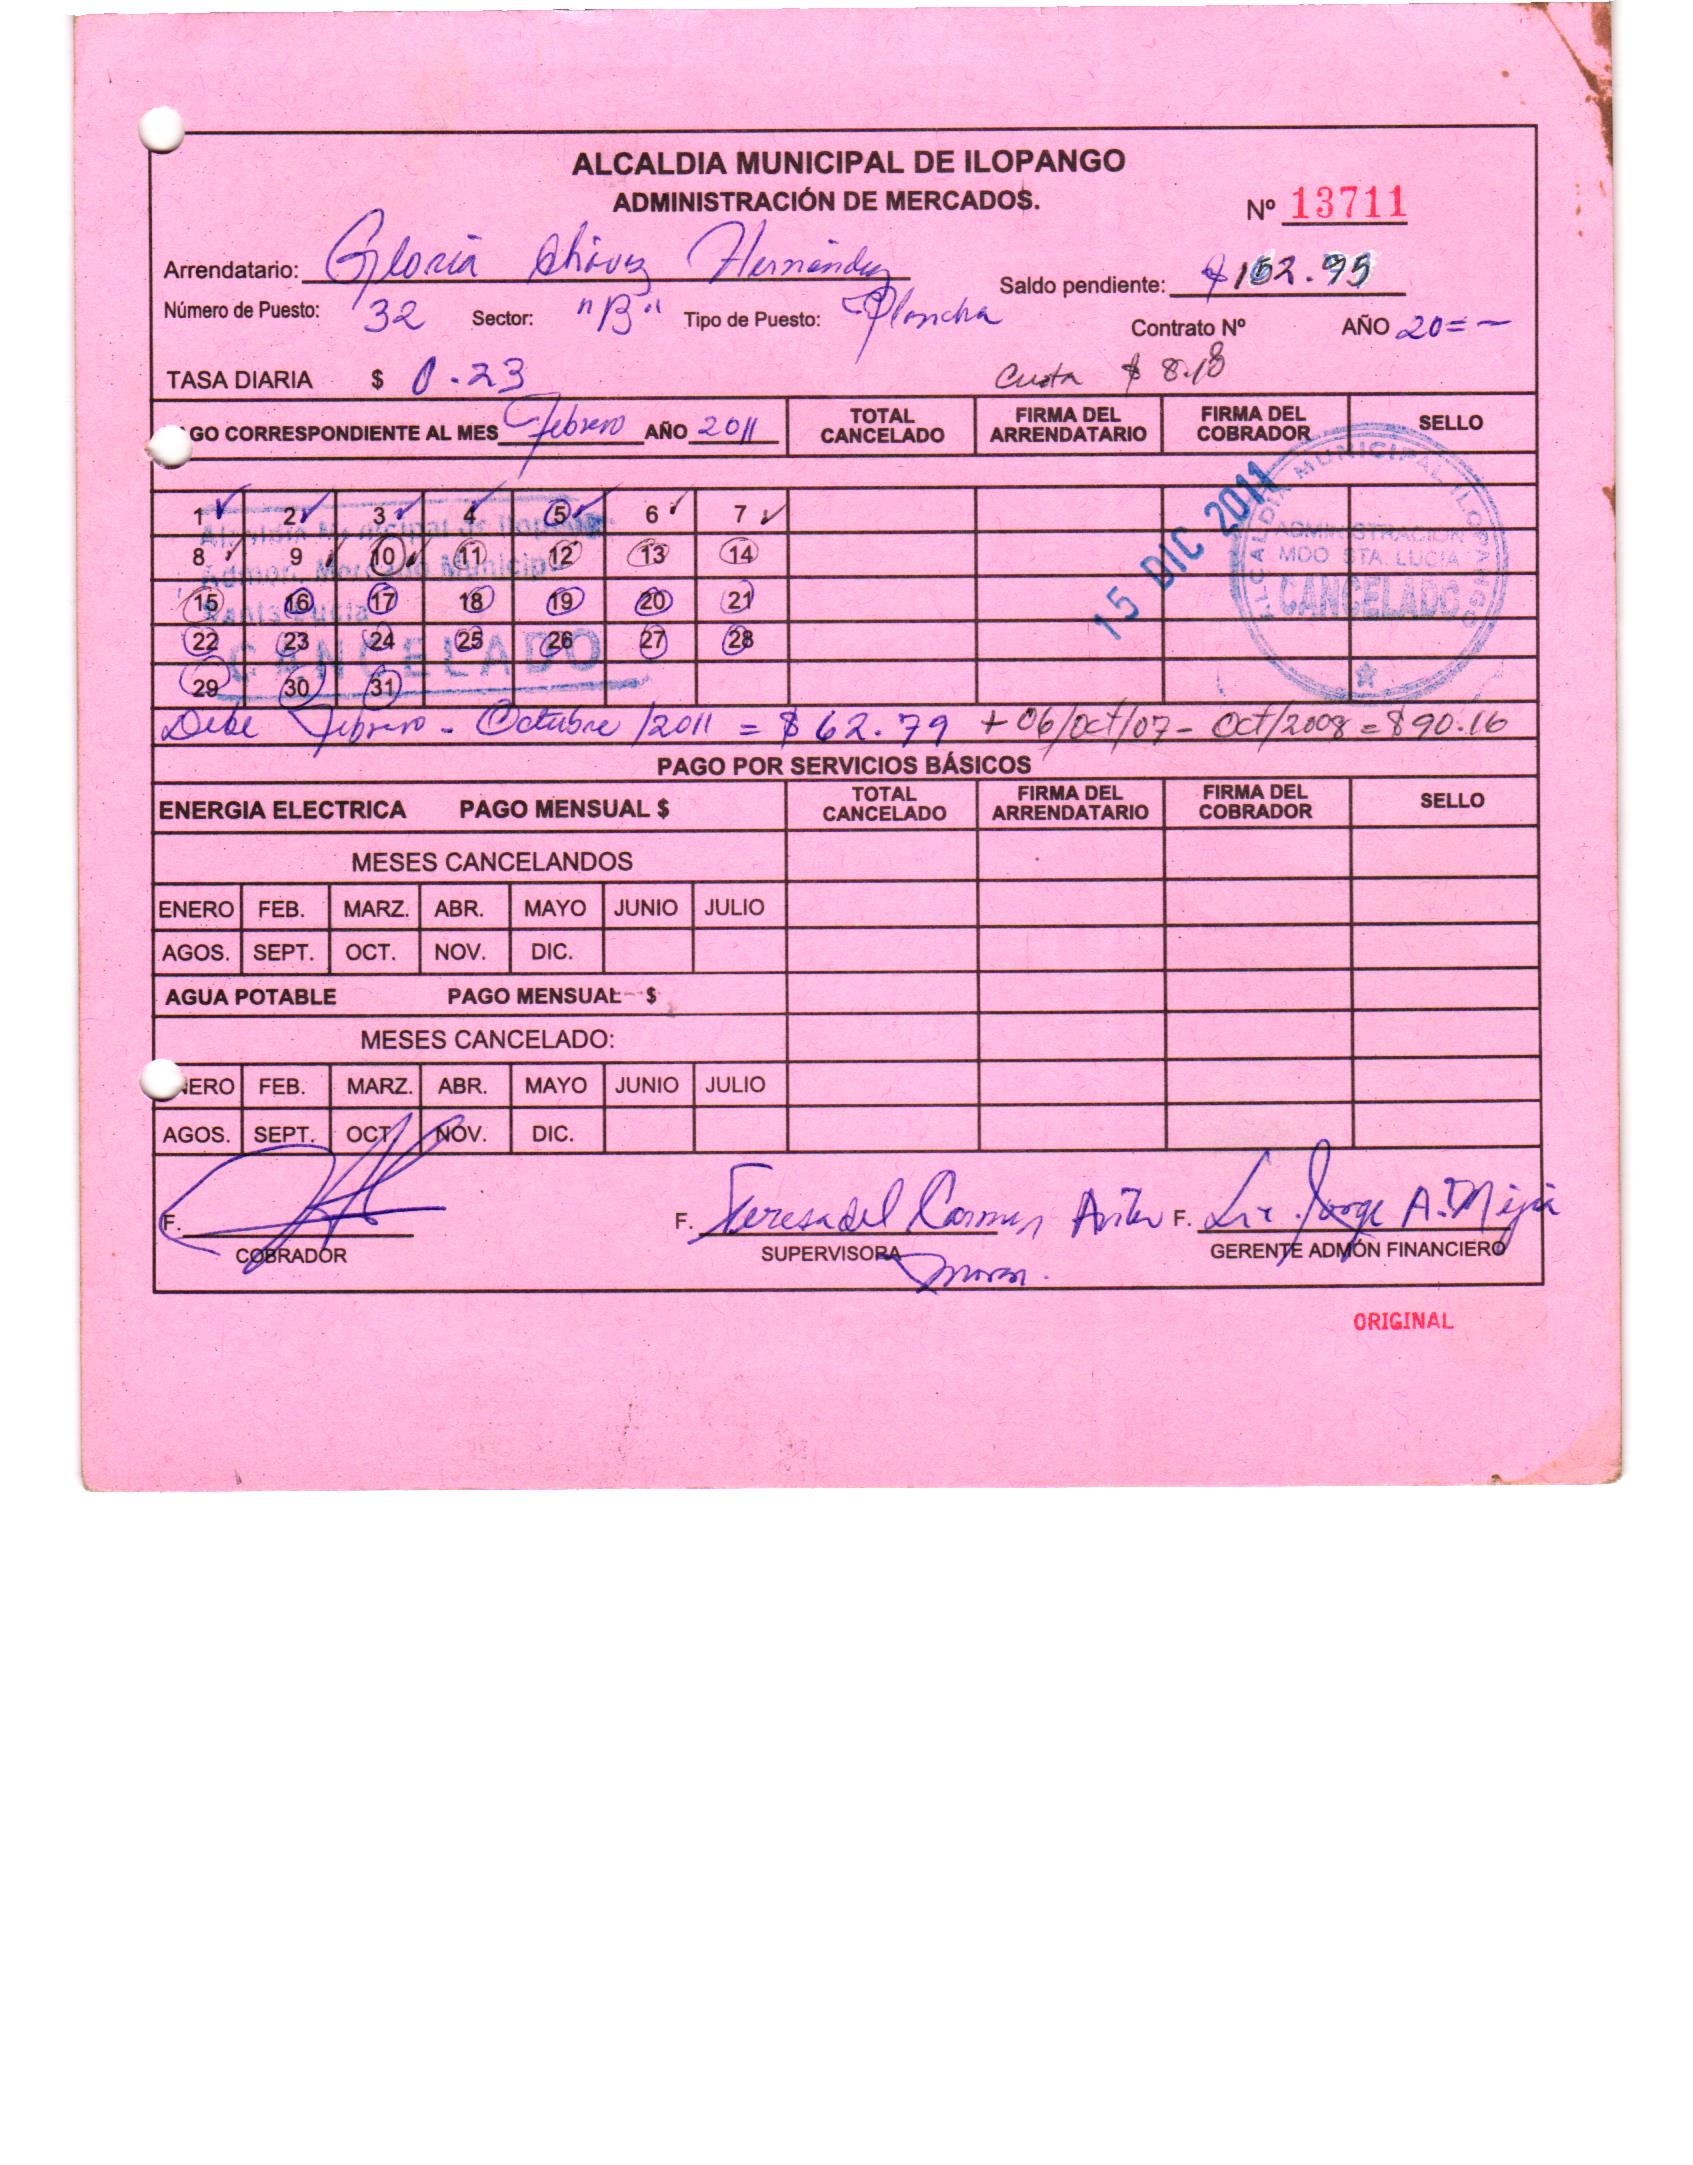 ALCALDIA MUNICIPAL DE ILOPANGO
ADMINISTRACIÓN DE MERCADOS.
Nº 13711
Arrendatario: Gloria Chávez Hernández
Saldo pendiente: $152.95
Número de Puesto: 32 Sector: "B" Tipo de Puesto: Plancha
Contrato Nº AÑO 20=-
TASA DIARIA $ 0.23
Cuota $ 8.18
AGO CORRESPONDIENTE AL MES Febrero AÑO 2011
TOTAL CANCELADO FIRMA DEL ARRENDATARIO FIRMA DEL COBRADOR SELLO
1 2 3 4 5 6 7
8 9 10 11 12 13 14
15 16 17 18 19 20 21
22 23 24 25 26 27 28
29 30 31
Alcaldia Municipal de Ilopango
Admon. Mercado Municipal
Santa Lucia
CANCELADO
15 DIC 2011
ALCALDIA MUNICIPAL ILOPANGO
ADMINISTRACION
MDO STA. LUCIA
CANCELADO
Debe Febrero - Octubre /2011 = $ 62.79 + 06/Oct/07 - Oct/2008 = $90.16
PAGO POR SERVICIOS BÁSICOS
ENERGIA ELECTRICA PAGO MENSUAL $
TOTAL CANCELADO FIRMA DEL ARRENDATARIO FIRMA DEL COBRADOR SELLO
MESES CANCELANDOS
ENERO FEB. MARZ. ABR. MAYO JUNIO JULIO
AGOS. SEPT. OCT. NOV. DIC.
AGUA POTABLE PAGO MENSUAL $
MESES CANCELADO:
NERO FEB. MARZ. ABR. MAYO JUNIO JULIO
AGOS. SEPT. OCT. NOV. DIC.
F. F. Teresa del Carmen F. Lic. Jorge A. Mejia
COBRADOR SUPERVISORA GERENTE ADMÓN FINANCIERO
ORIGINAL